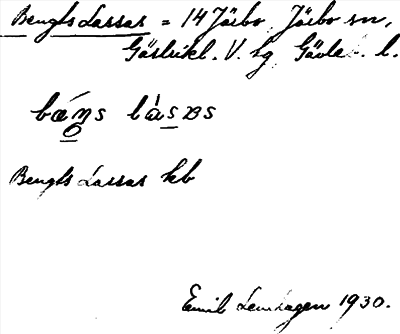 Bengts Lassas = 14 Järbo, Järbo sn,
Gästrikl. V. hg Gävle. l.
bæŋs làsas
Bengts Lassas kb
Emil Lenhagen 1930.